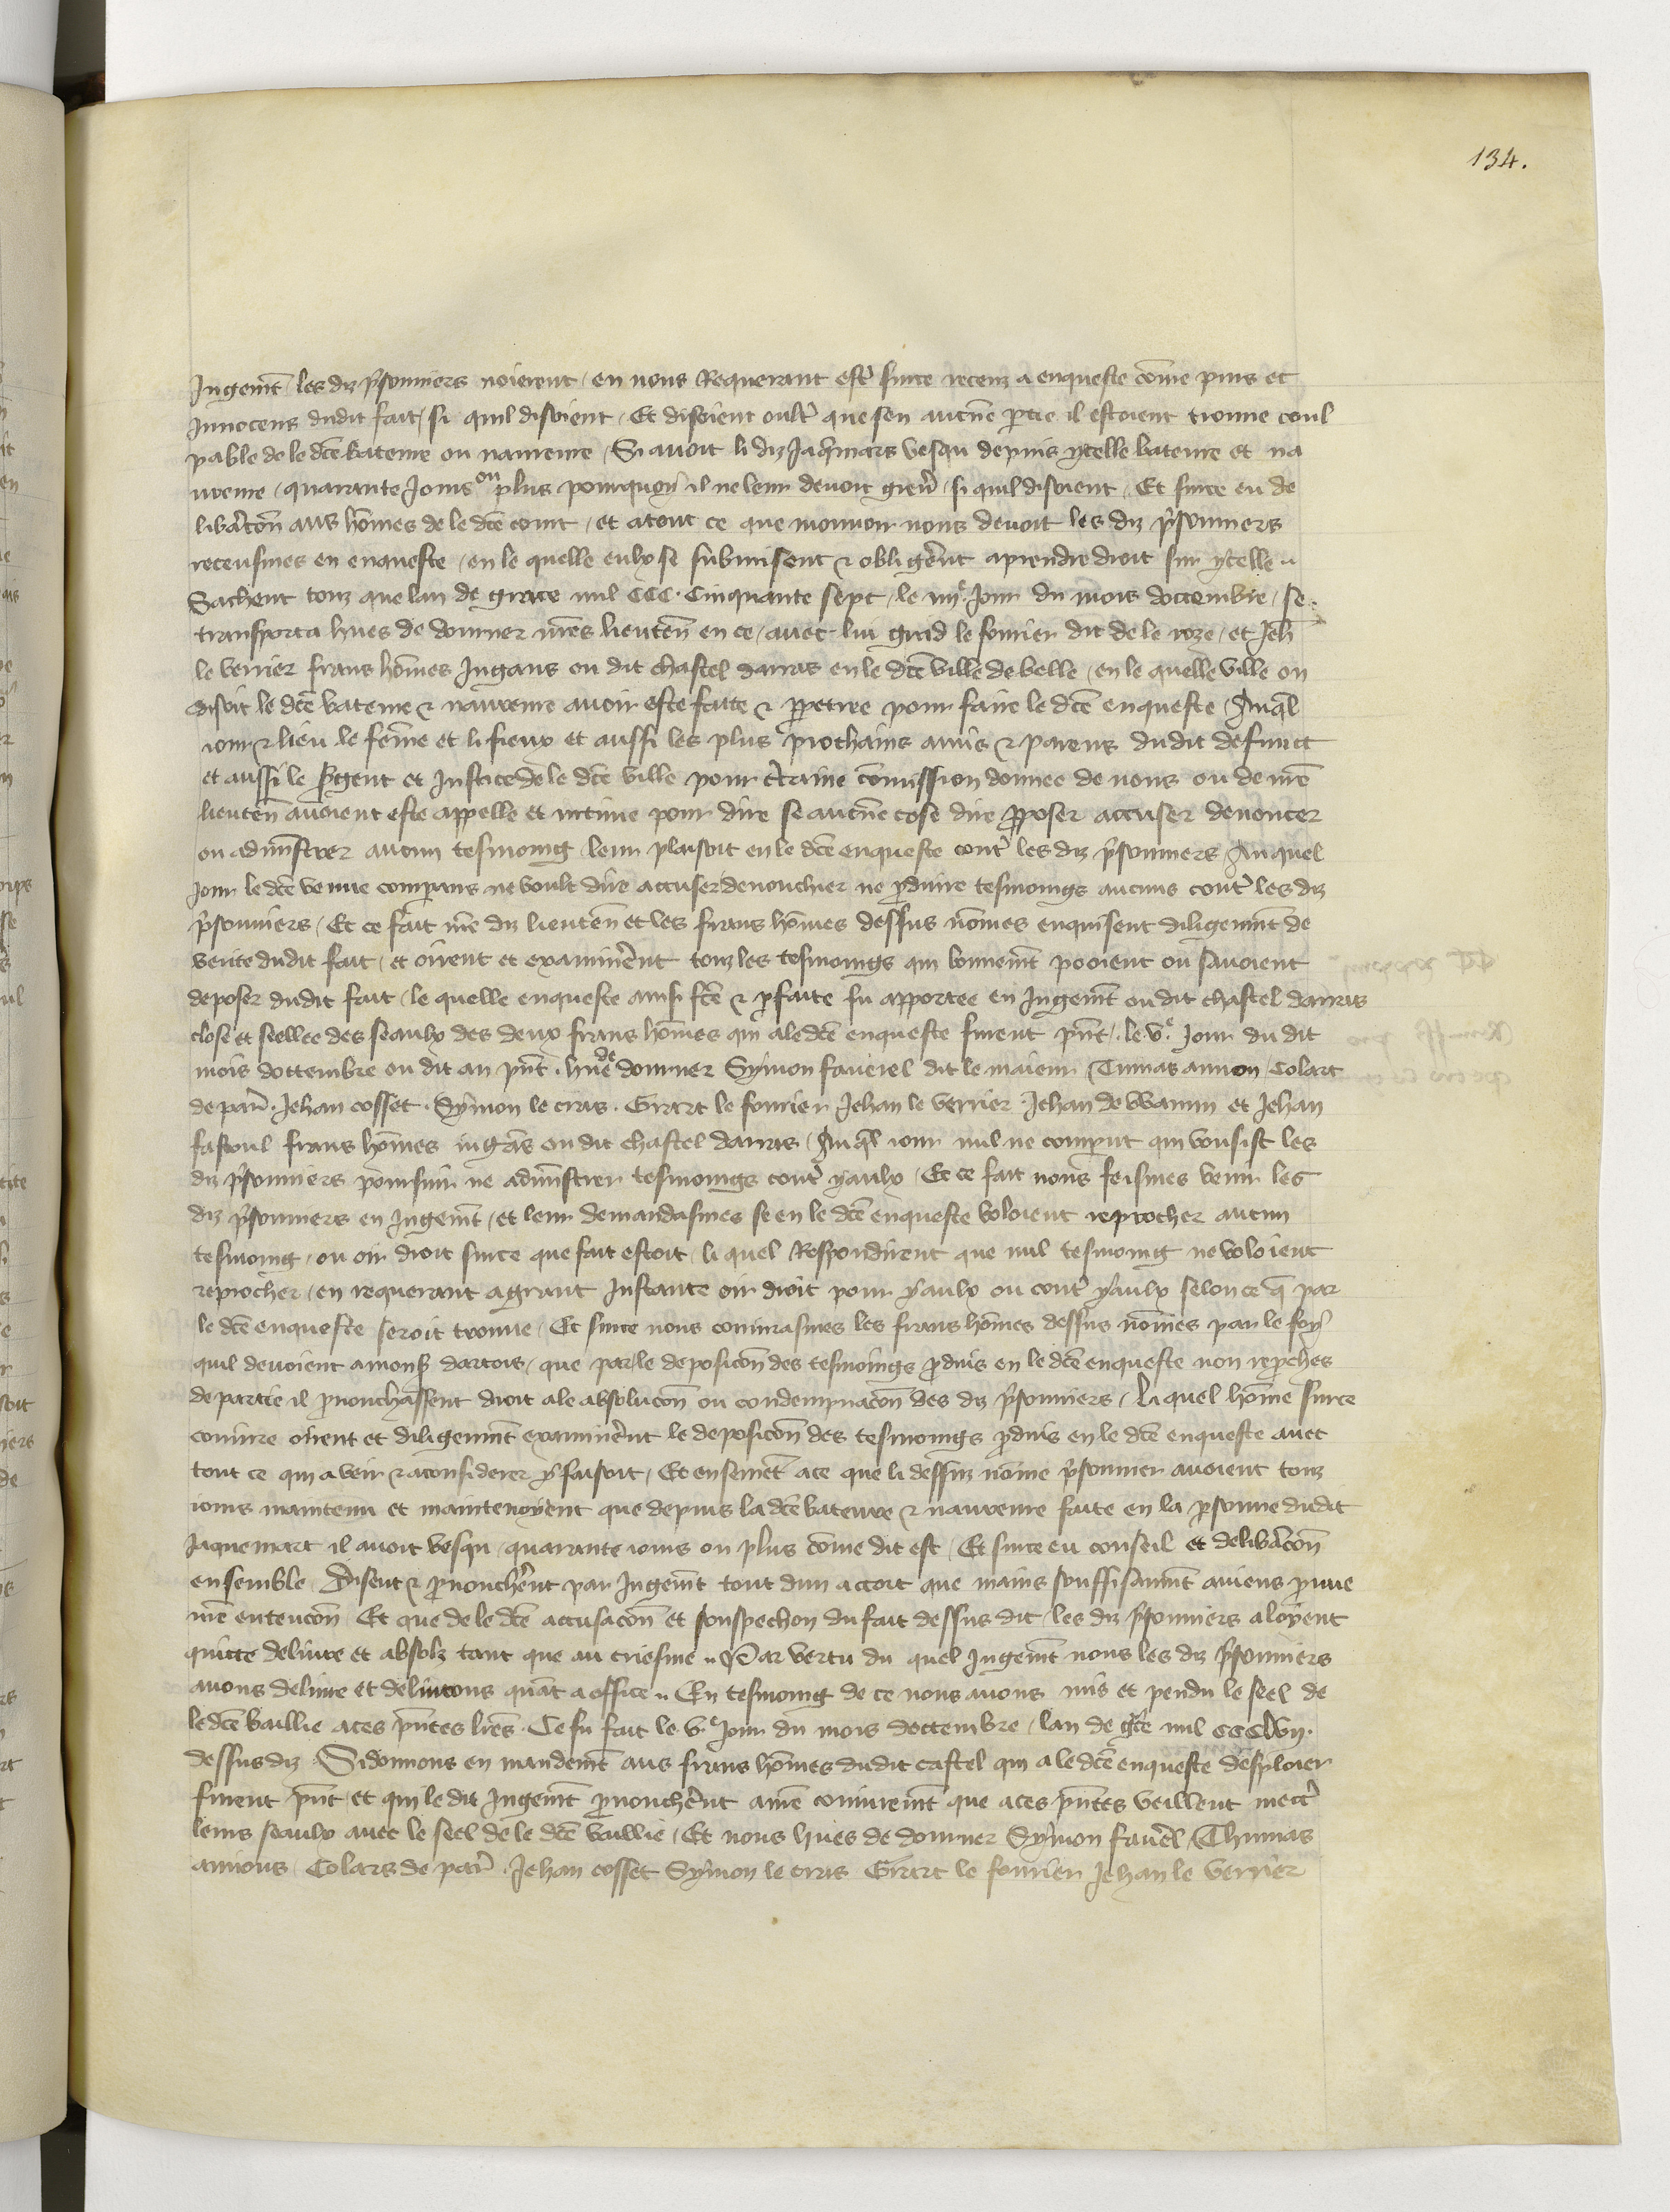 134.
Jugemt les diz prisonniers noierent / en nous Requerant estre surce receuz a enqueste come purs et
Innocens dudit fait / si quil disoient / Et disoient oultre que sen aucune partie il estoient trouve coul
pable de le dce bateure ou navreure / Si avoit li diz Jaqmars vescu depuis ycelle bateure et na
vreure / quarante Jours ou plus pourquoy il ne leur devoit grever / si quil disoient / Et surce eu de
liberacon aus homes de le dce court / et atout ce que mouvoir nous devoit les diz prisonniers
receusmes en enqueste / en le quelle eulx se submisent & obligerent aprendre droit sur ycelle //
Sachent touz que lan de grace mil CCC. Cinquante sept / le iiije. Jour du mois doctembre / se
transporta hues de dommer nres lieuten en ce / avec lui grard le fourier dit de le roze / et Jeh
le verrier frans homes Jugans ou dit chastel darras en le dce ville de belle / en le quelle ville on
disoit le dce bateure & navreure avoir este faite & perpetree pour faire le dce enqueste / Auql
jour & lieu le feme et li fieux et aussi les plus prochains amis & parens dudit defunct
et aussi le sergent et Justice de le dce ville pour certaine comission donnee de nous ou de nre
lieuten avoient este appelle et intime pour dire se aucune cose dire proposer accuser denoncer
ou administrer aucun tesmoing leur plaisoit en le dce enqueste contre les diz prisonniers / Auquel
jour le dce venue comparans ne voult dire accuser denonchier ne produire tesmoings aucuns contre les diz
prisonniers / Et ce fait nre diz lieuten et les frans homes dessus nomes enquisent diligemt de
verite dudit fait / et oirent et examinerent touz les tesmoings qui bonnemt pooient ou savoient
deposer dudit fait / le quelle enqueste ainsi fce & parfaite fu apportee en Jugemt ou dit chastel darras
close et seellee des seaulx des deux frans homes qui ale dce enqueste furent pnt / le .ve. jour du dit
mois doctembre ou dit an pnt . hue de dommer Symon faverel dit le maieur / Tumas amion / Colart
de paris . Jehan cosset . Symon le cras . Grart le fourier Jehan le verrier . Jehan de Wamin et Jehan
fastoul frans homes jugans ou dit chastel darras / Auql jour nul ne comparut qui vousist les
diz prisonniers poursuir ne administrer tesmoings contre yaulx / Et ce fait nous feismes venir les
diz prisonniers en Jugemt / et leur demandasmes se en le dce enqueste voloient reprocher aucun
tesmoing / ou oir droit surce que fait estoit / li quel Respondirent que nul tesmoing ne voloient
reprocher / en requerant agrant Instance oir droit pour yaulx ou contre yaulx selon ce q par
le dce enqueste seroit trouve / Et surce nous conjurasmes les frans homes dessus nomes par le foy
quil devoient a monsr dartois / que par le deposicon des tesmoings produis en le dce enqueste non reproches
de partie il pronunchassent droit ale absolucon ou condempnacon des diz prisonniers / Li quel home surce
conjure oirent et diligemt examinerent le deposicon des tesmoings produis en le dce enqueste avec
tout ce qui a veir & aconsiderer y faisoit / Et ensemt ace que li dessuz nome prisonnier avoient touz
jours maintenu et maintenoyent que depuis la dce bateure & navreure faite en la personne dudit
Jaquemart il avoit vesqu quarante jours ou plus come dit est / Et surce eu conseil et deliberacon
ensemble / Disent & pronuncherent par Jugemt tout dun accort que mains souffisanmt aviens prouve
nre entencon / Et que de le dce accusacon et souspechon du fait dessus dit / les diz prisonniers aloyent
quitte delivre et absolz tant que au criesme // Par vertu du quel Jugemt nous les diz prisonniers
avons delivre et delivrons quant a office // En tesmoing de ce nous avons mis et pendu le seel de
le dce baillie aces pntes lres . Ce fu fait le .ve. jour du mois doctembre / lan de gce mil CCCLVij.
dessus diz . Si donnons en mandemt aus frans homes dudit castel qui ale dce enqueste desploier
furent pnt / et qui le dit Jugemt pronuncherent a nre conjuremt que aces pntes veillent mectre
leurs seaulx avec le seel de le dce baillie / Et nous hues de dommer Symon faverel / Thumas
amions Colars de paris . Jehan cosset Symon le cras Grart le fourier Jehan le verrier